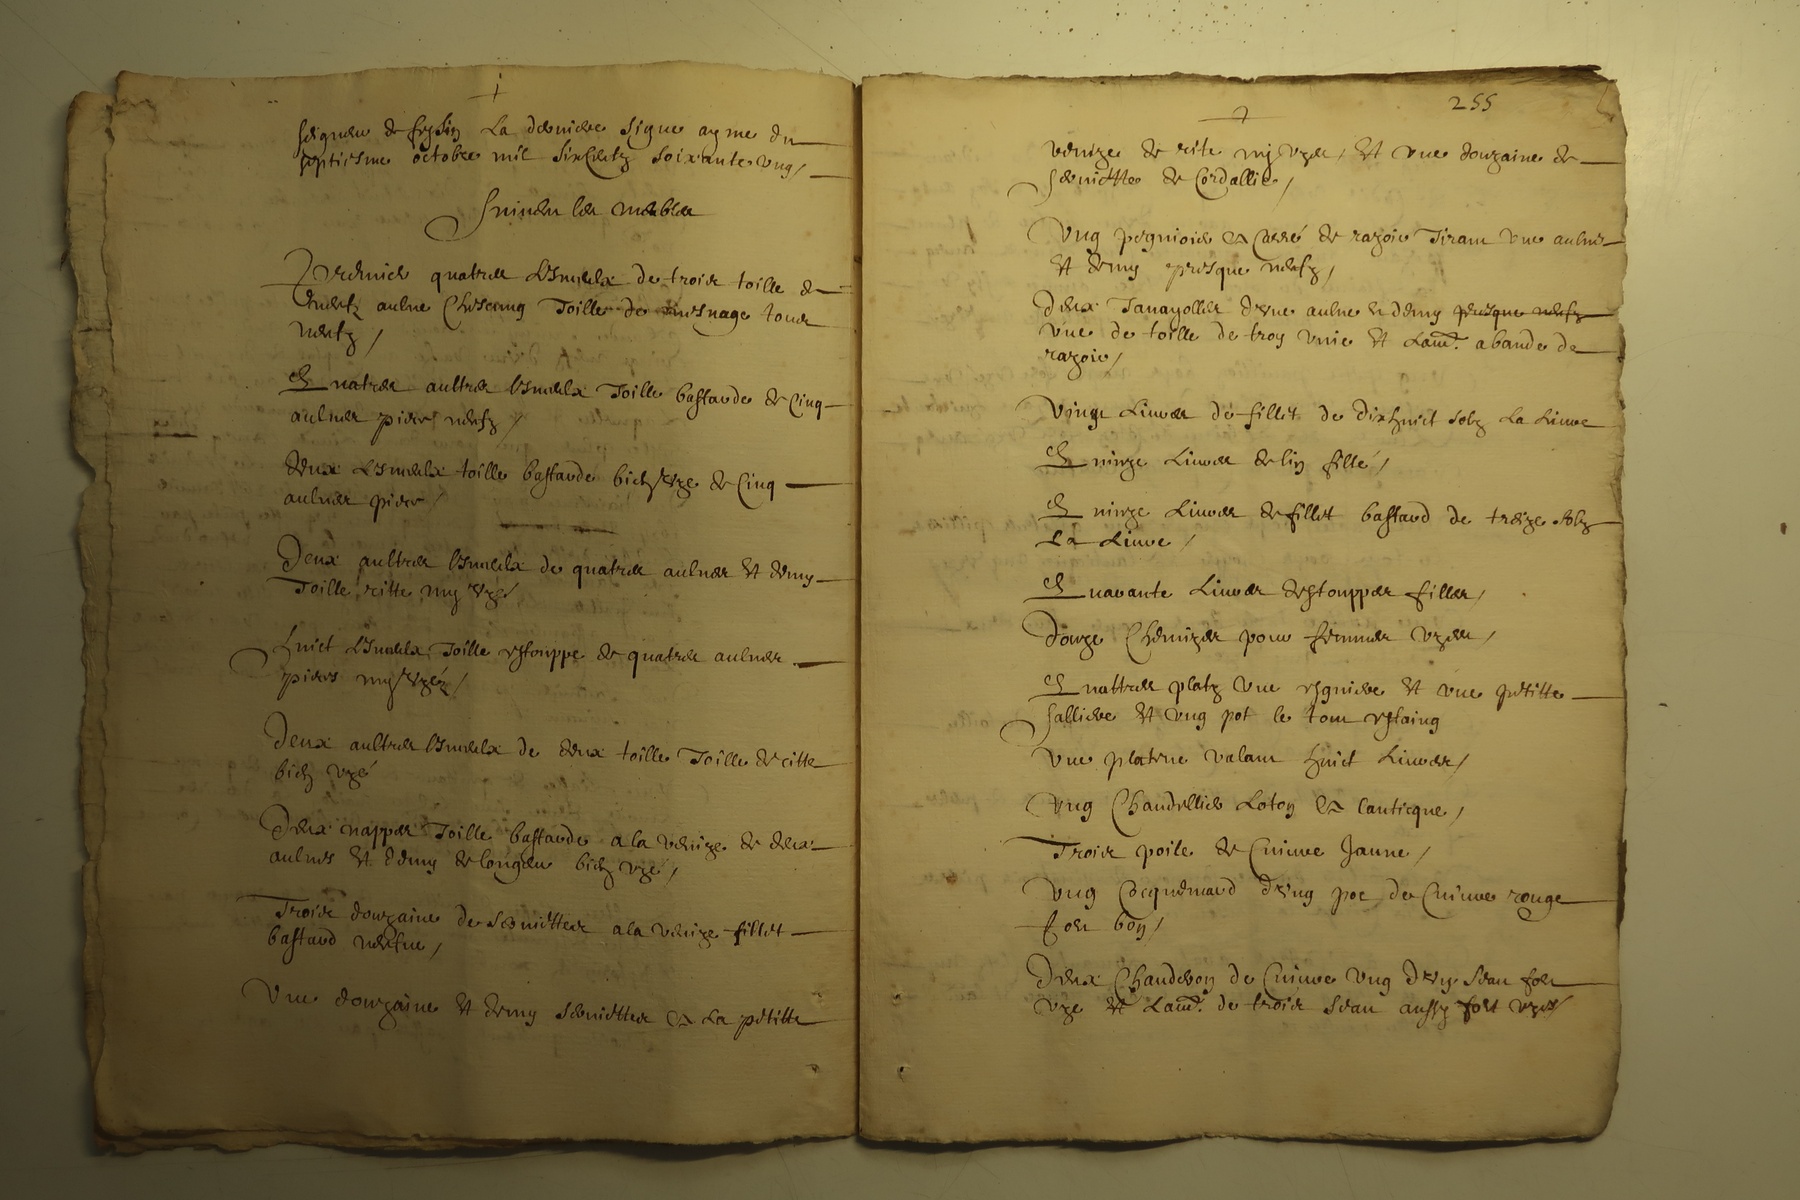 seigneur de la derniere signe ayme du
septiesme octobre mil six centz soixante ung /
Suivent les meubles
Premier quatres linceulx de trois toille de
aulne chescung Toille de mesnage tous
neufz /
Quatres aultres linceulx Toille bastarde de cinq
aulnes piece neufz /
deux linceulx toille bastarde bien uze de cinq
aulnes piece /
Deux aultres linceulx de quatres aulnes et demy
Toille ritte my uze
huict linceulx Toille estouppe de quatres aulnes
piece my uzez /
Deux aultres linceulx de deux toille Toille de ritte
bien uzé
Deux nappes Toille bastarde a la venize de deux
aulnes et demy de longeur bien uzé /
Trois douzaine de serviettes a la venize fillet
bastard neufve /
Une douzaine et demy serviettes a la petitte
255
venize de rite my uzes / et une douzaine de
serviette de Cordallie /
Ung de razoir Tirant une aulne
et demy presque neufz /
deux Tavayolles d'une aulne et demy presque neufz
une de toille de troy unie et laut.e a bande de
razoir /
Vingt Livres de fillet de dixhuict solz La Livre
Quinze Livres de lin fillé /
Quinze Livres de fillet bastard de treize solz
La Livre /
Quarante Livres d'estouppes filles /
Douze Chemizes pour femmes uzees /
Quattres platz une esguiere et une petitte
salliere et ung pot le tout estaing
une platene valant huict Livres /
Ung Chandellier Loton a lanticque /
Trois poile de Cuivre Jaune /
Ung Cocquemard d'ung pot de Cuivre rouge
fort bon /
Deux Chauderon de Cuivre Ung d'ung seau fort
uze et Laut.e de trois seau aussy fort uzes